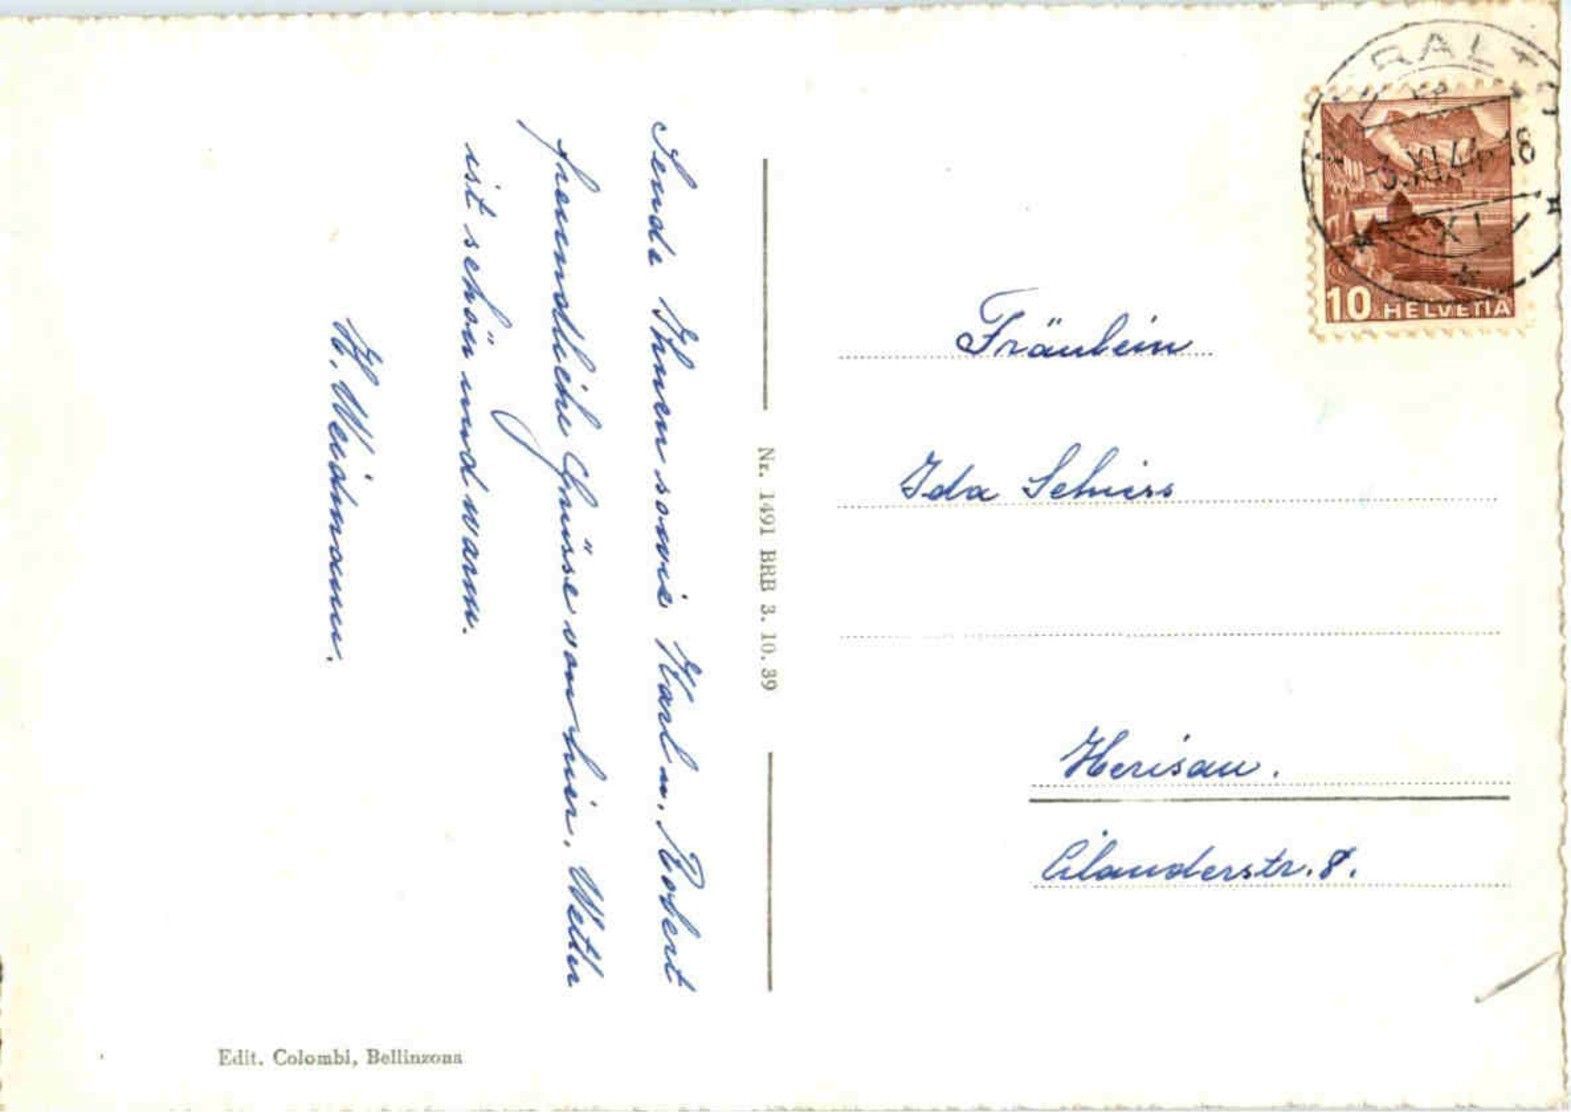 Sende Ihnen sowie Karl u. Robert
freundliche Grüsse von hier. Wetter
ist schön und warm.
H. Weidmann.
Nr. 1491 BRB 3. 10. 39
Edit. Colombi, Bellinzona
10 HELVETIA
Fräulein
Ida Schiess
Herisau.
Cilanderstr. 8.